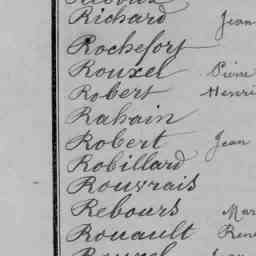 Richard Jean
Rochefort
Rouxel Pierre
Robert Henri
Rahain
Robert Jean
Robillard
Rouvrais
Rebours Mar
Rouault René